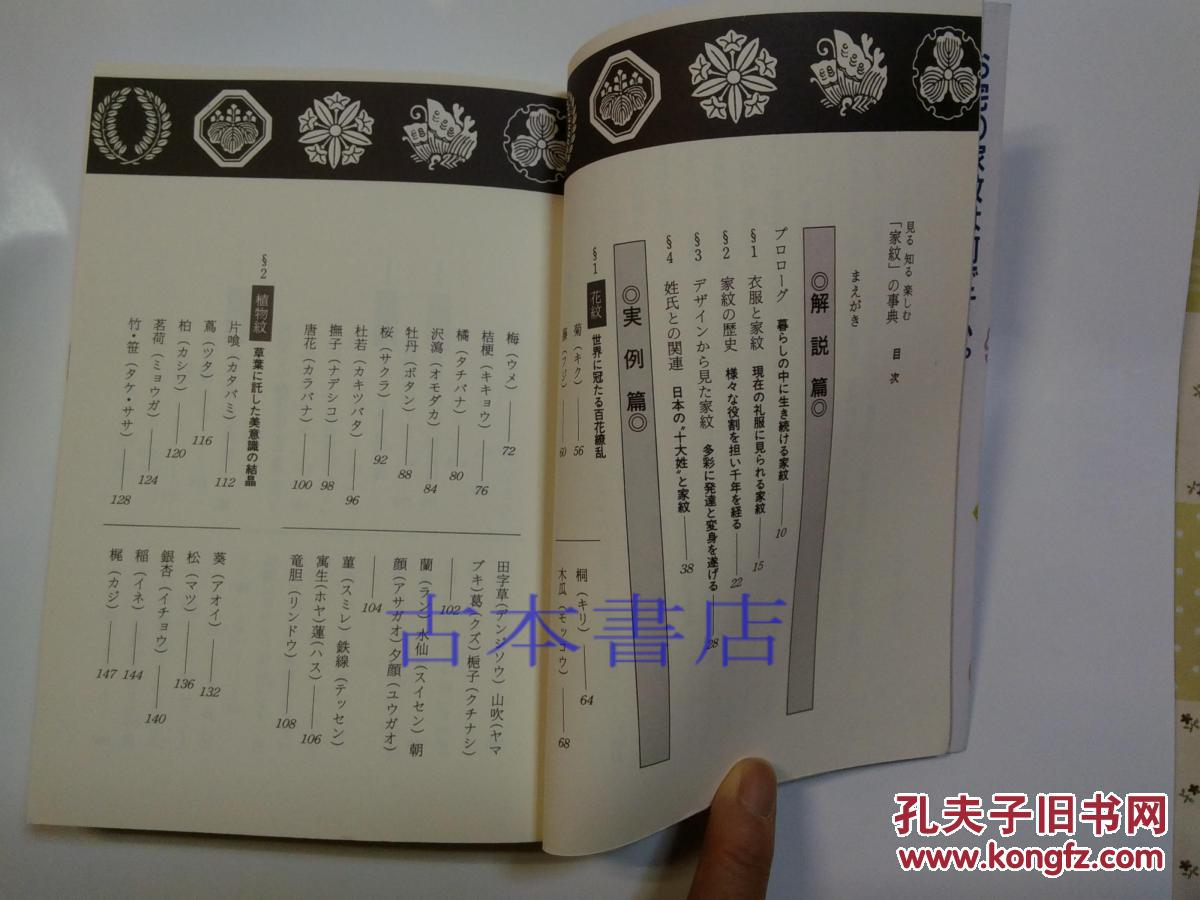 見る 知る 楽しむ
「家紋」の事典 目次
まえがき
◎解説篇◎
プロローグ 暮らしの中に生き続ける家紋 10
§1 衣服と家紋 現在の礼服に見られる家紋 15
§2 家紋の歴史 様々な役割を担い千年を経る 22
§3 デザインから見た家紋 多彩に発達と変身を遂げる 28
§4 姓氏との関連 日本の〝十大姓〟と家紋 38
◎実例篇◎
§1 花紋 世界に冠たる百花繚乱
菊(キク) 56
藤(フジ) 60
桐(キリ) 64
木瓜(モッコウ) 68
梅(ウメ) 72
桔梗(キキョウ) 76
橘(タチバナ) 80
沢瀉(オモダカ) 84
牡丹(ボタン) 88
桜(サクラ) 92
杜若(カキツバタ) 96
撫子(ナデシコ) 98
唐花(カラバナ) 100
田字草(デンジソウ) 山吹(ヤマ
ブキ) 葛(クズ) 梔子(クチナシ)
102
蘭(ラン) 水仙(スイセン) 朝
顔(アサガオ) 夕顔(ユウガオ)
104
菫(スミレ) 鉄線(テッセン)
寓生(ホヤ) 蓮(ハス) 106
竜胆(リンドウ) 108
§2 植物紋 草葉に託した美意識の結晶
片喰(カタバミ) 112
蔦(ツタ) 116
柏(カシワ) 120
茗荷(ミョウガ) 124
竹・笹(タケ・ササ) 128
葵(アオイ) 132
松(マツ) 136
銀杏(イチョウ) 140
稲(イネ) 144
梶(カジ) 147
古本書店
孔夫子旧书网
www.kongfz.com